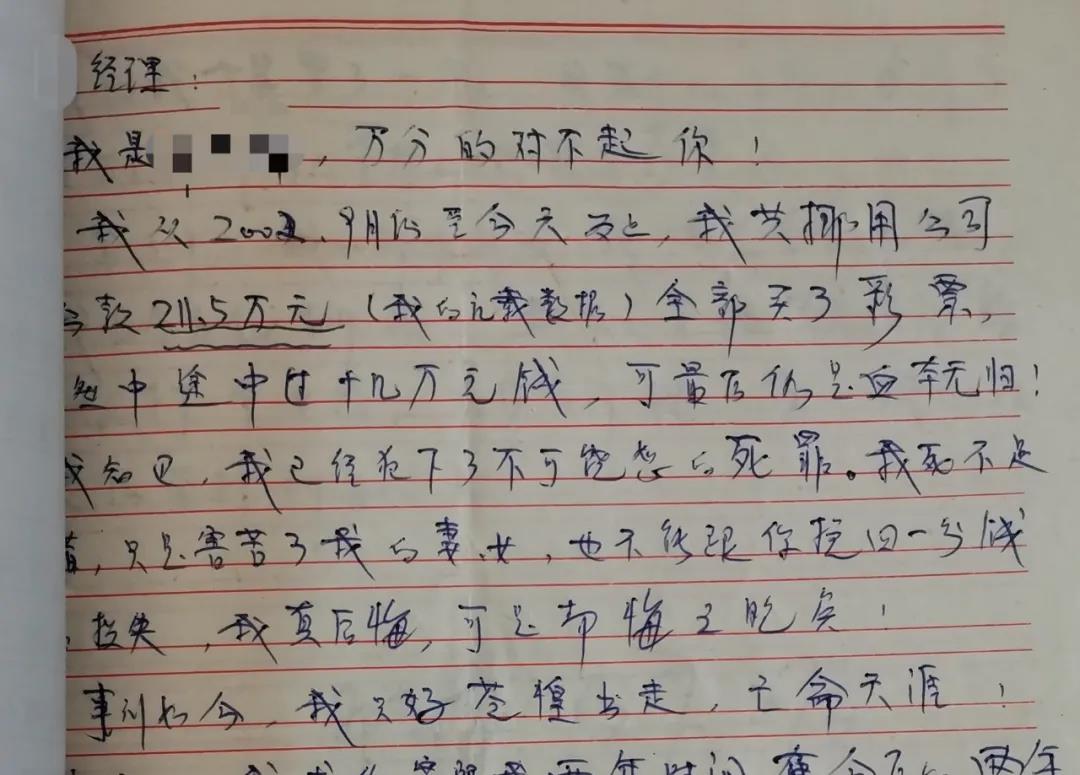 经理：
我是，万分的对不起你！
我从200、月份至今天为止，我共挪用公司
公款211.5万元（我的记载数据）全部买了彩票，
中途中过十几万元钱，可最后仍是血本无归！
我知道，我已经犯下了不可饶恕的死罪。我死不足
惜，只是害苦了我的妻女，也不能跟你挽回一分钱
损失，我真后悔，可是却悔之晚矣！
事到如今，我只好苍惶出走，亡命天涯！
我两年时间